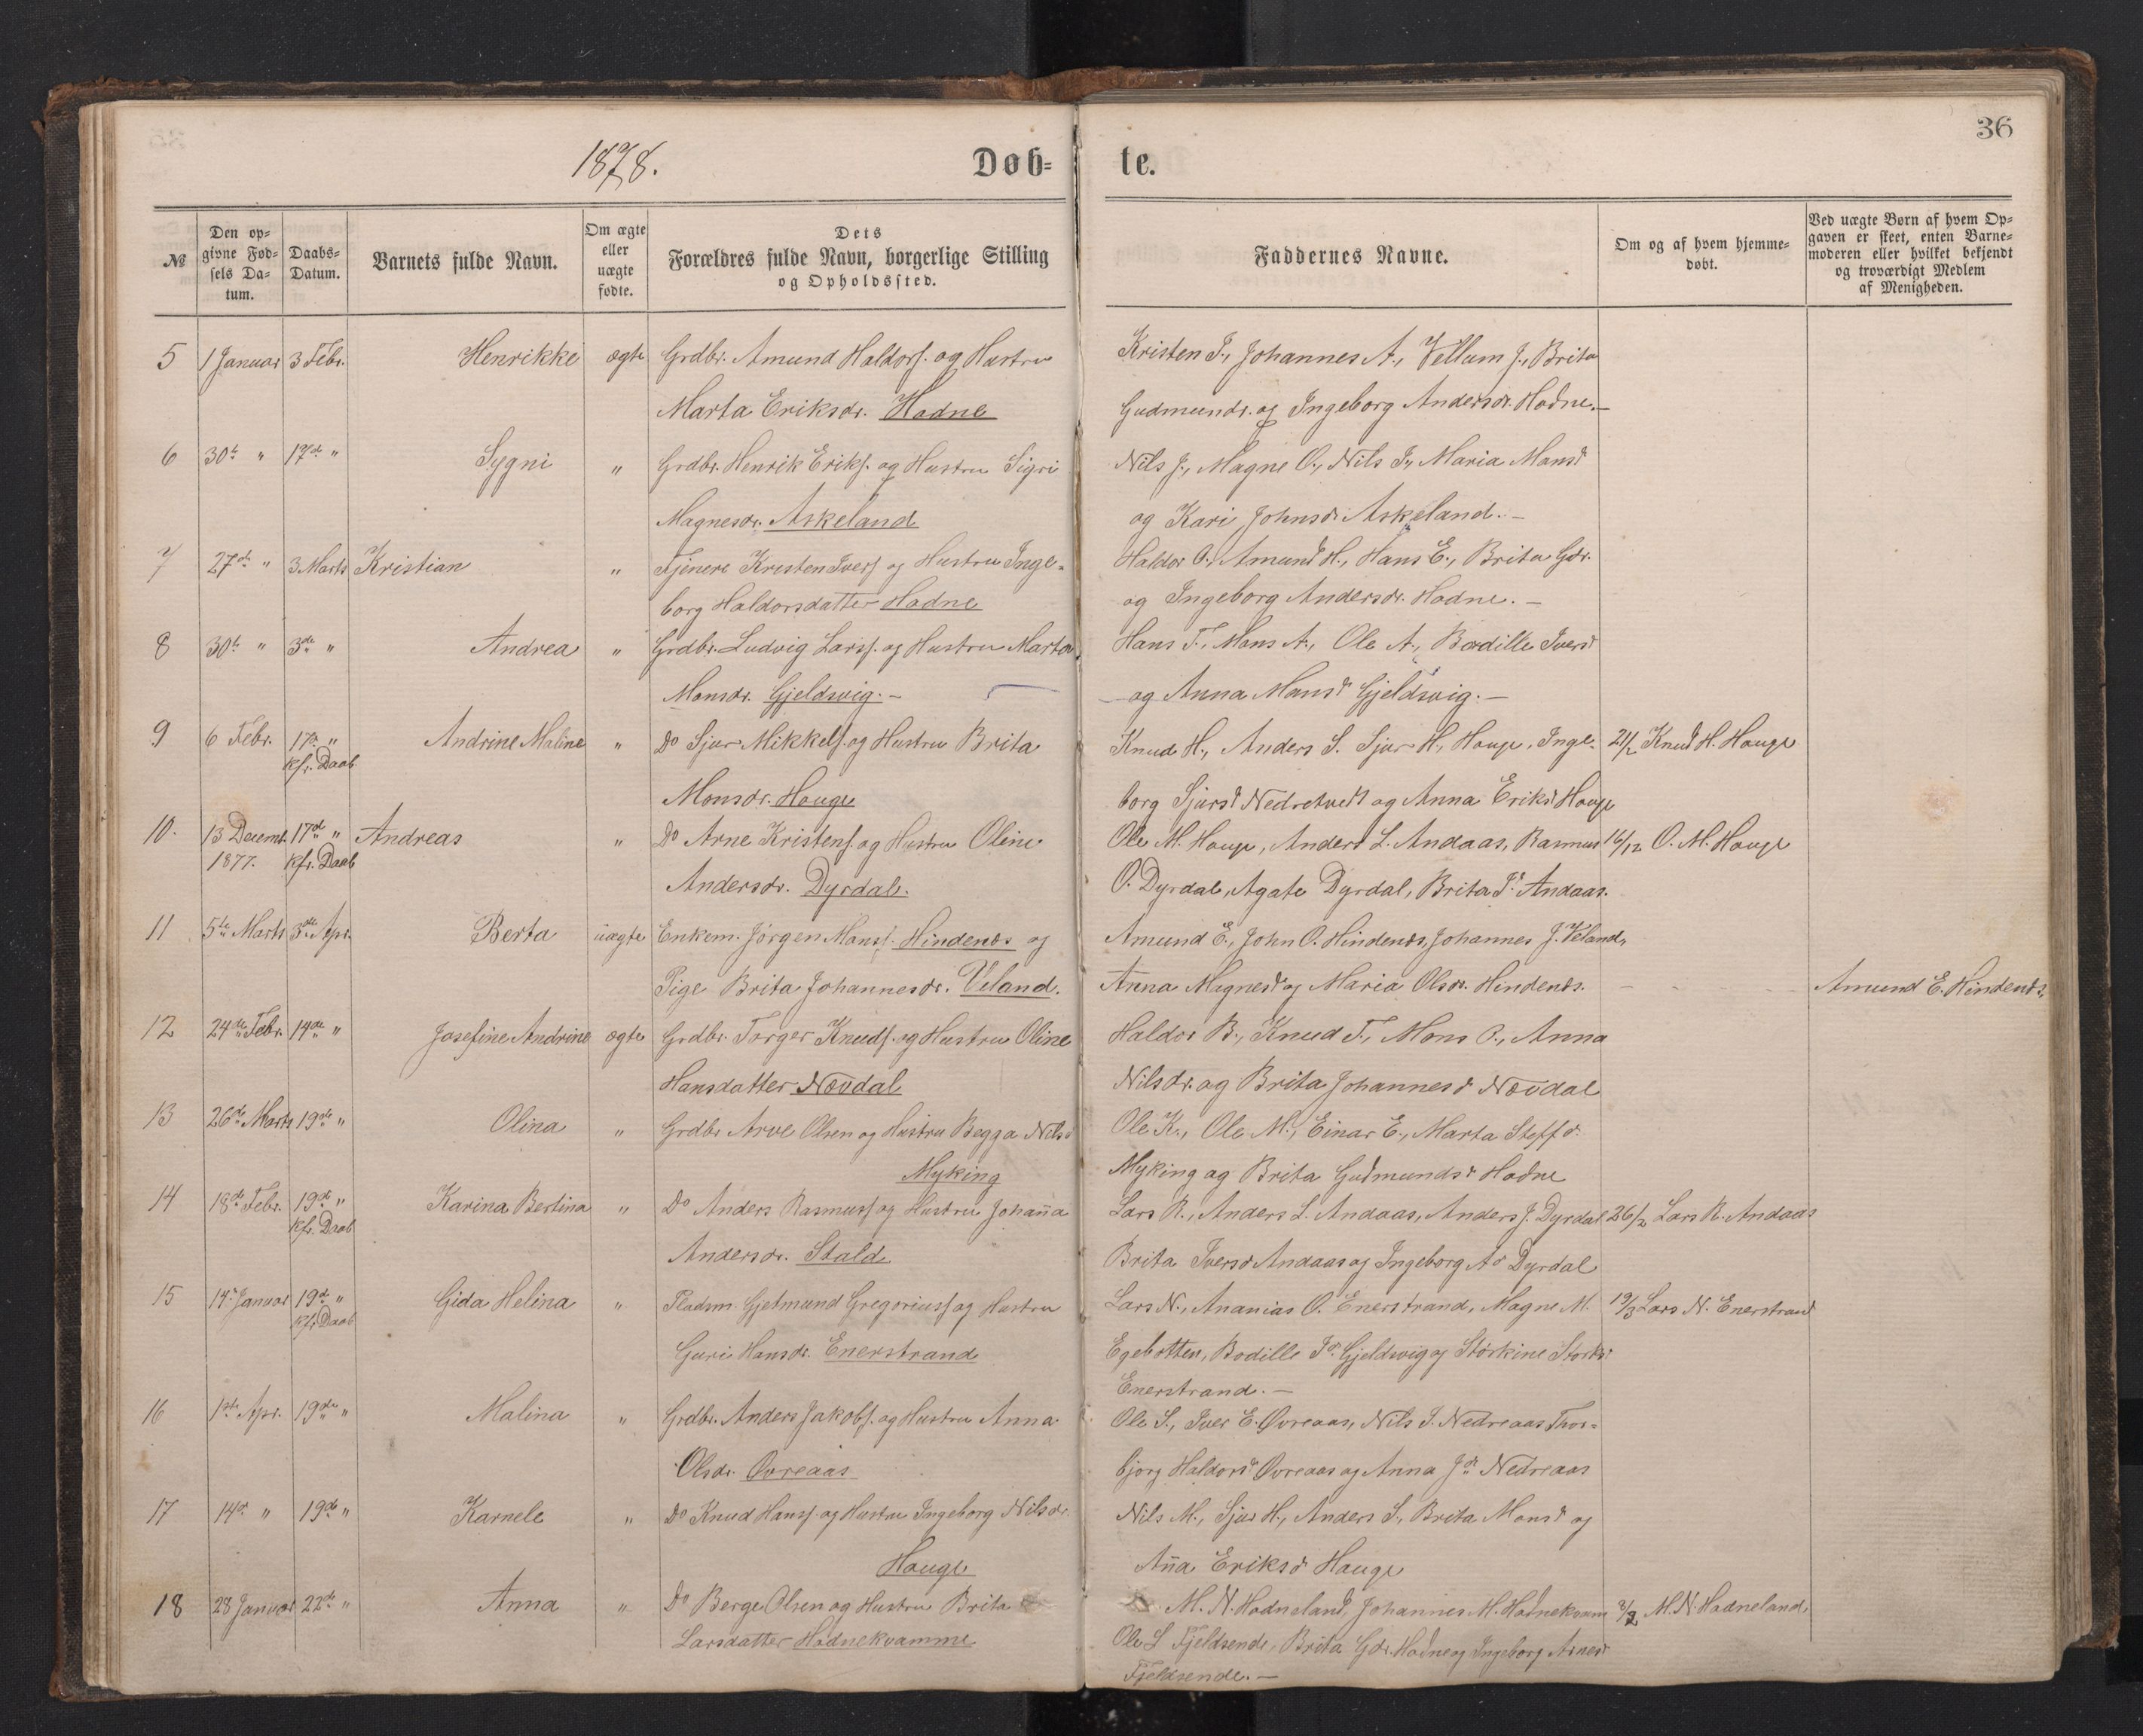 36
1878.
Døb-
te.
№
Den op-
givne Fød-
sels Da-
tum.
Daabs-
Datum.
Barnets fulde Navn.
Om ægte
eller
uægte
fødte.
Dets
Forældres fulde Navn, borgerlige Stilling
og Opholdssted.
Faddernes Navne.
Om og af hvem hjemme-
døbt.
Ved uægte Børn af hvem Op-
gaven er skeet, enten Barne-
moderen eller hvilket bekjendt
og troværdigt Medlem
af Menigheden.
5 1 Januar 3 Febr. Henrikke ægte Grdbr. Amund Haldors. og Hustru
Marta Eriksdr. Hodne
Kristen I., Johannes A., Vellum J., Brita
Gudmunds. og Ingeborg Andersdr. Hodne.—
6 30te " 17de " Sygni " Grdbr. Henrik Eriks. og Hustru Sigri
Magnesdr. Askeland
Nils J., Magne O., Nils I., Maria Monsd
og Kari Johnsdr Askeland.—
7 27de " 3 Marts Kristian " Tjenere Kristen Ivers. og Hustru Inge-
borg Haldorsdatter Hodne
Haldor O., Amund H., Hans E., Brita Gdr.
og Ingeborg Andersdr. Hodne.—
8 30te " 3de " Andrea " Grdbr. Ludvig Larss. og Hustru Marta
Monsdr. Gjeldsvig.—
Hans T., Mons A., Ole A., Bodille Iversd
og Anna Monsd Gjeldsvig.—
9 6 Febr. 17de " Andrine Maline " Do Sjur Mikkels. og Hustru Brita
kfr. Daab
Monsdr. Houge
Knud H., Anders S. Sjur H. Houge, Inge-
borg Sjursd Nedretvedt og Anna Eriksd Houge
21/2 Knud H. Houge
10. 13 Decemb. 17de " Andreas " Do Arne Kristens. og Hustru Oline
1877. kfr. Daab
Andersdr. Dyrdal.
Ole M. Houge, Anders L. Andaas, Rasmus
O. Dyrdal, Agate Dyrdal, Brita Id Andaas.
16/12 O. M. Houge
11 5te Marts 3de Apr. Berta uægte Enkem. Jörgen Monss. Hindenes og
Pige Brita Johannesdr. Veland.
Amund E., John O. Hindenes, Johannes J. Veland,
Anna Magnesd og Maria Olsdr. Hindenes.
Amund E. Hindenes.
12 24de Febr. 14de " Josefine Andrine ægte Grdbr. Torger Knuds. og Hustru Oline
Hansdatter Nøvdal
Haldor B., Knud T., Mons O., Anna
Nilsdr. og Brita Johannesd Nøvdal
13 26de Marts 19de " Olina " Grdbr. Arve Olsen og Hustru Begga Nilsd
Myking
Ole K., Ole M., Einar E., Marta Steffd.
Myking og Brita Gudmundsd Hodne
14 18de Febr. 19de " Karina Bertina " Do Anders Rasmuss. og Hustru Johan̄a
kfr. Daab
Andersdr. Stald
Lars R., Anders L. Andaas, Anders J. Dyrdal
Brita Iversd Andaas og Ingeborg Ad Dyrdal
26/2 Lars R. Andaas
15 14de Januar 19de " Gida Helina " Pladsm. Gjetmund Gregoriuss. og Hustru
kfr. Daab
Guri Hansdr. Enerstrand
Lars N., Ananias O. Enerstrand, Magne M.
Egebotten, Bodille Id. Gjeldsvig og Störkine Störksd
Enerstrand.—
19/3 Lars N. Enerstrand
16 1ste Apr. 19de " Malina " Grdbr. Anders Jakobs. og Hustru Anna
Olsdr. Øvreaas
Ole S., Iver E. Øvreaas, Nils I. Nedreaas Thor-
bjorg Haldorsd Øvreaas og Anna Jd Nedreaas
17 14de " 19de " Karnele " Do Knud Hanss. og Hustru Ingeborg Nilsdr.
Houge
Nils M., Sjur H., Anders S., Brita Monsd og
An̄a Eriksd Houge
18 28 Januar 22de " Anna " Do Berge Olsen og Hustru Brita
Larsdatter Hodnekvamme
M. N. Hodneland, Johannes M. Hodnekvam
Ole L Fjeldsende, Brita Gdr. Hodne og Ingeborg Arnesd
Fjeldsende.—
3/2 M. N. Hodneland.